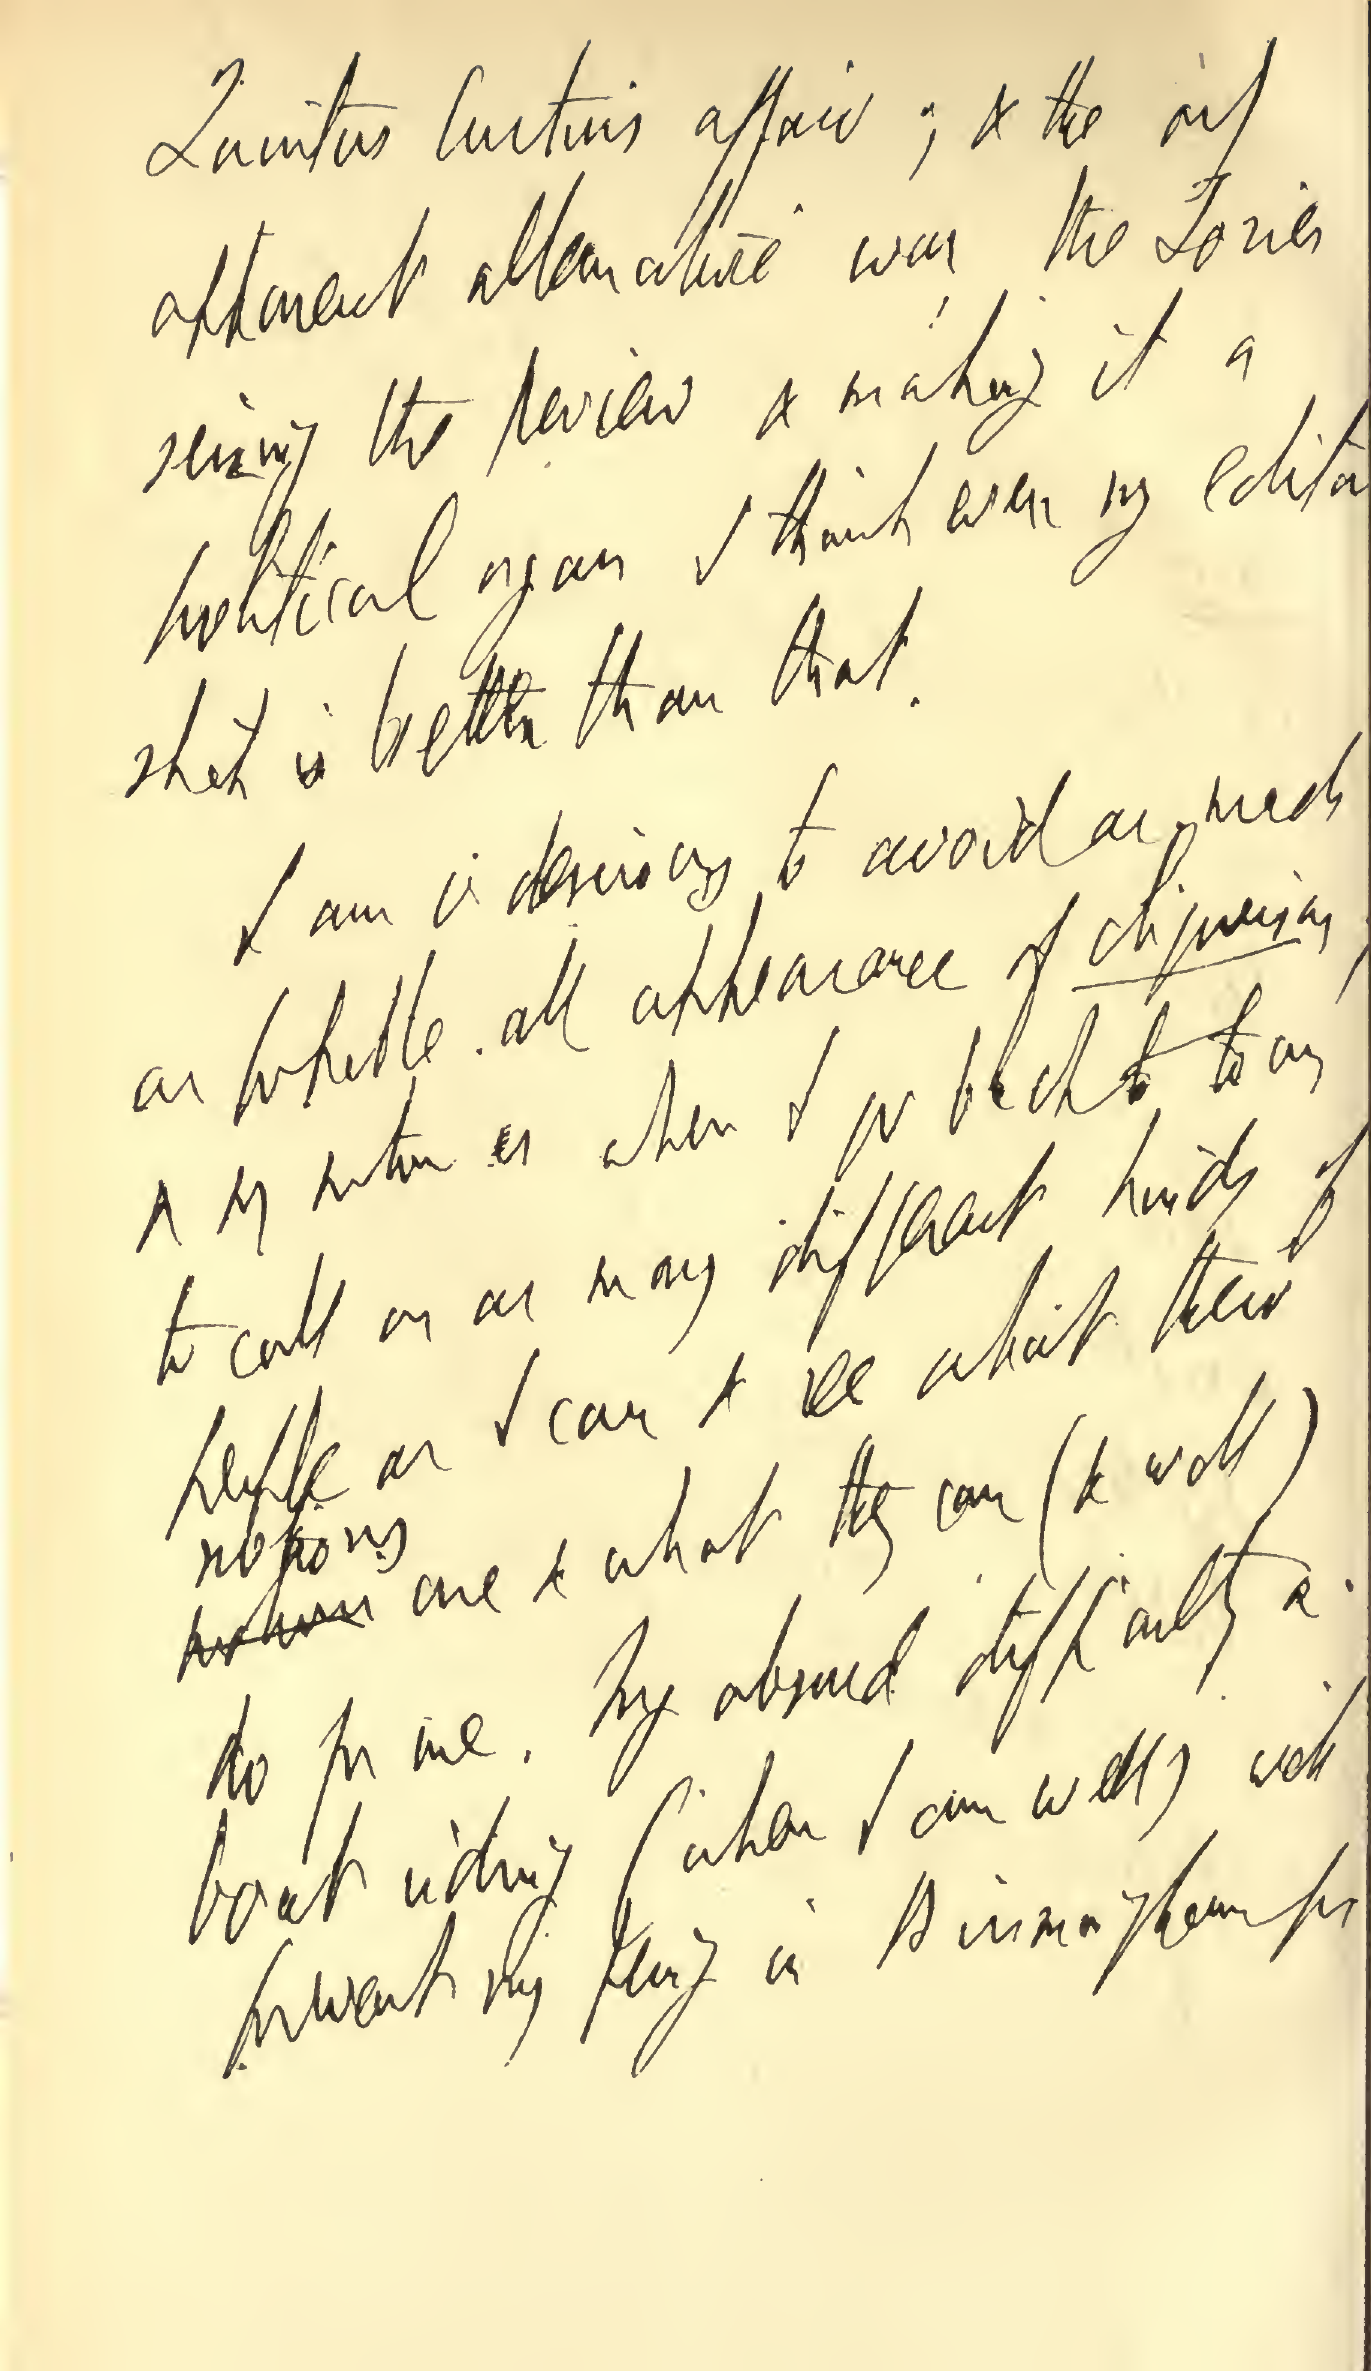 Quintus Curtius affair; & the only
apparent alternative was the Tories
seizing the Review & making it a
political organ I think even my editor
ship is better than that.
I am v. desirous to avoid as much
as possible all appearance of cliqueism,
& my notion is when I go back to to try
to call on as many different kinds of
people as I can & see what their
notions
are & what they can (& will)
do for me. My absurd difficulty a
bout riding (when I am well) will
prevent my being in Birmingham for